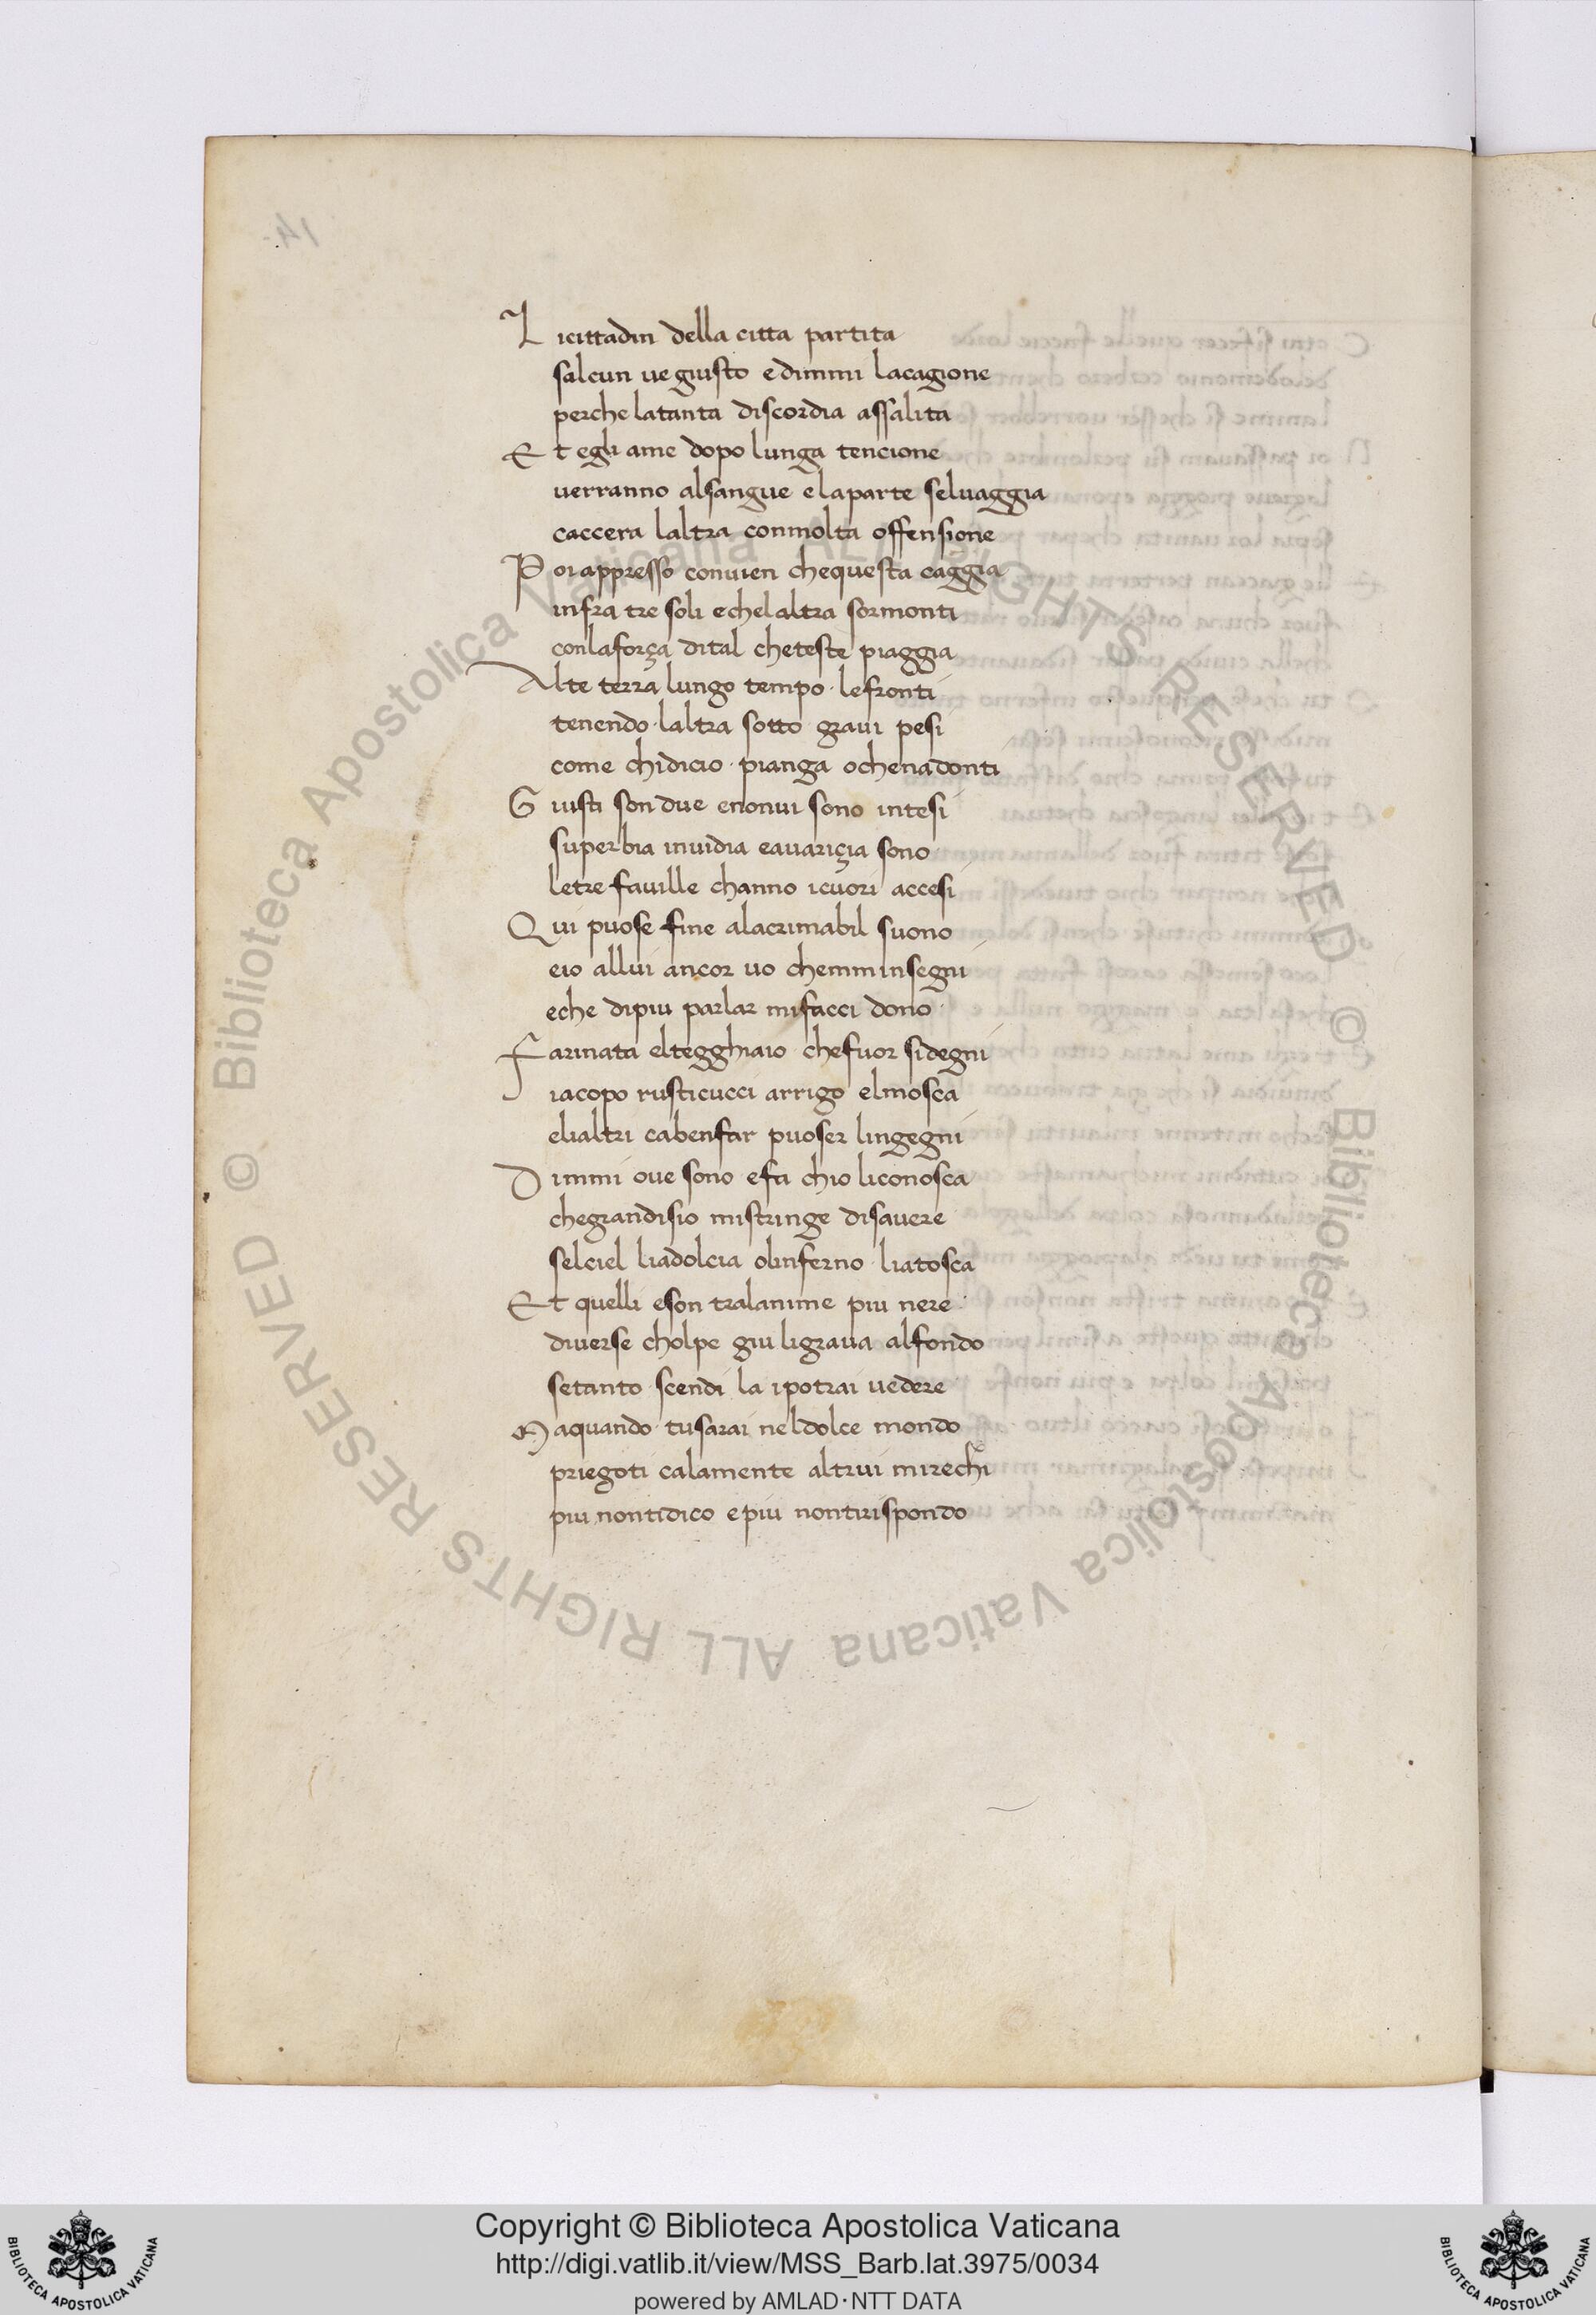 L icittadin della citta partita
salcun ue giusto edimmi lacagione
perche latanta discordia assalita
E t egli ame dopo lunga tencione
uerranno alsangue elaparte seluaggia
caccera laltra conmolta offensione
P oi appresso conuien chequesta caggia
infra tre soli echelaltra sormonti
conlaforça dital cheteste piaggia
Alte terra lungo tempo · lefronti
tenendo · laltra sotto graui pesi
come chidicio · pianga ochenadonti
G iusti son due enonui sono intesi
superbia inuidia eauariçia sono
letre fauille channo icuori accesi
Q ui puose fine alacrimabil suono
eio allui ancor uo chemminsegni
eche dipiu parlar mifacci dono
F arinata eltegghiaio chefuor sidegni
iacopo rusticucci arrigo elmosca
elialtri cabenfar puoser lingegni
D immi oue sono efa chio liconosca
chegrandisio mistringe disauere
selciel liadolcia olinferno liatosca
E t quelli eson tralanime piu nere
diuerse cholpe giu ligraua alfondo
setanto scendi la ipotrai uedere
M aquando tusarai neldolce mondo
priegoti calamente altrui mirechi
piu nontidico epiu nontirispondo
14
© Biblioteca Apostolica Vaticana ALL RIGHTS RESERVED © Biblioteca Apostolica Vaticana ALL RIGHTS RESERVED
Copyright © Biblioteca Apostolica Vaticana
http://digi.vatlib.it/view/MSS_Barb.lat.3975/0034
powered by AMLAD·NTT DATA
BIBLIOTECA APOSTOLICA VATICANA
BIBLIOTECA APOSTOLICA VATICANA